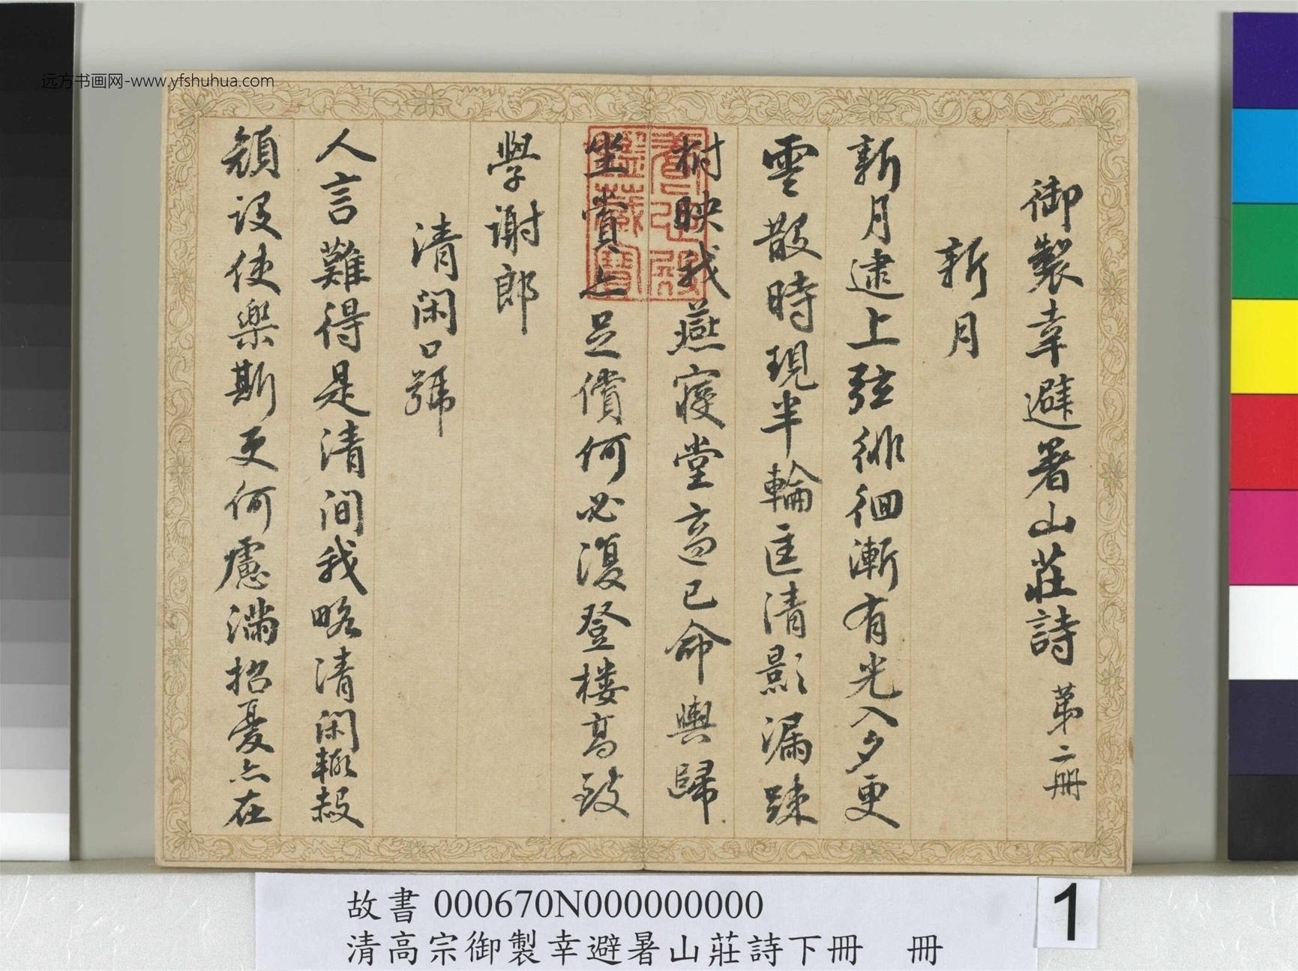 远方书画网-www.yfshuhua.com
御製幸避暑山莊詩 第二冊
新月
新月逮上弦徘徊漸有光入夕更
雲散時現半輪匡清影漏踈
樹映我燕寢堂斋已命輿歸
坐賞亦足償何必復登楼高致
學謝郎
清閑口號
人言難得是清间我略清閑輙赧
顔设使樂斯更何慮滿招憂亦在
養心殿鑑藏寶
故書 000670N000000000
清高宗御製幸避暑山莊詩下冊 冊
1